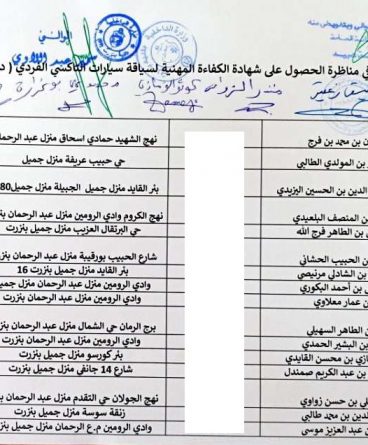 في مناظرة الحصول على شهادة الكفاءة المهنية لسياقة سيارات التاكسي الفردي ( د
بن محمد بن فرج
نهج الشهيد حمادي اسحاق منزل عبد الرحمان
بن المولدي الطالبي
حي حبيب عريفة منزل جميل
الدين بن الحسين اليزيدي
بئر القايد منزل جميل الجبيلة منزل جميل80
بن المنصف البلعيدي
نهج الكروم وادي الرومين منزل عبد الرحمان بنزرت
بن الطاهر فرج الله
حي البرتقال العزيب منزل جميل بنزرت
بن الحبيب الحشاني
شارع الحبيب بورقيبة منزل عبد الرحمان بنزرت
بن الشاذلي مرنيصي
بئر القايد منزل جميل بنزرت 16
بن أحمد البكوري
وادي الرومين منزل عبد الرحمان منزل جميل
بن عمار معلاوي
وادي الرومين منزل عبد الرحمان بنزرت
الطاهر السهيلي
برج الرمان حي الشمال منزل عبد الرحمان بنزرت
بن البشير الحمدي
وادي الرومين منزل عبد الرحمان بنزرت
بن محسن القايدي
بئر كورسو منزل جميل بنزرت
بن عبد الكريم صمندل
شارع 14 جانفي منزل جميل بنزرت
بن حسن زواوي
نهج الجولان حي التقدم منزل عبد الرحمان بنزرت
الدين بن محمد طالبي
زنقة سوسة منزل جميل بنزرت
علي بن عبد العزيز موسى
وادي الرومين م.ع الرحمان منزل جميل بنزرت